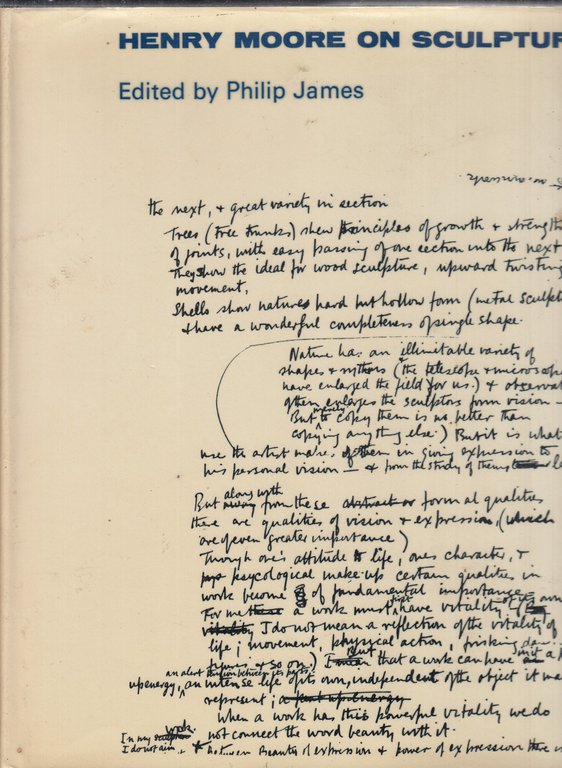 HENRY MOORE ON SCULPTUR
Edited by Philip James
the next, + great variety in section
Trees (tree trunks) shew principles of growth + strength
of joints, with easy passing of one section into the next
They show the ideal for wood sculpture, upward twisting
movement.
Shells show natures hard but hollow form (metal sculpt
+ have a wonderful completeness of single shape.
Nature has an illimitable variety of
shapes + rythms (the telescope + microscope
have enlarged the field for us.) + observat
often enlarges the sculptors form vision —
But merely to copy them is no better than
copying anything else.) But it is what
use the artist makes of them in giving expression to
his personal vision — + from the study of them
But along with from these abstract or formal qualities
there are qualities of vision + expression, (which
are of even greater importance)
Through one's attitude to life, ones character, +
psycological make-up certain qualities in
work become of fundamental importance
For me a work must first have vitality
vitality I do not mean a reflection of the vitality of
life; movement, physical action, frisking
figures, + so on.) But I mean that a work can have in it a p
up energy, an intense life of its own, independent of the object it ma
represent;
When a work has this powerful vitality we do
not connect the word beauty with it.
In my work
I do not aim.
Between Beauty of expression + power of expression there is